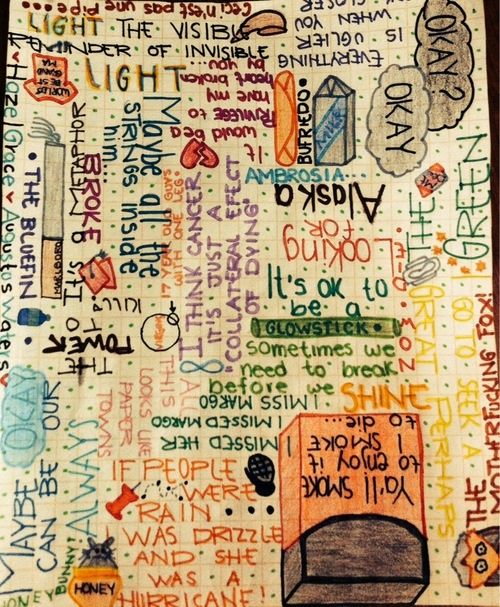 Ceci n'est pas une pipe...
LIGHT THE VISIBLE
REMINDER OF INVISIBLE
LIGHT
WORLDS
BEST
GRANDMA
EVERYTHING
IS UGLIER
WHEN YOU
CLOSER
OKAY?
OKAY
It
would be a
PRIVILEGE to
have my
heart broken
by you...
BUFRIEDO
MILK
Hazel Grace
Augustus Waters
THE BLUEFIN
MARLBORO
IT'S A METAPHOR
BROKE
Maybe all the
STRINGS inside
him...
17 YEAR OLD GUYS
WITH ONE LEG"
I THINK CANCER
IS JUST A
"COLLATERAL EFFECT
OF DYING"
AMBROSIA...
Alaska
Looking
FOR
THE
GREEN
It's OK to
be a
GLOWSTICK
sometimes we
need to break
before we
SHINE
GREAT PERHAPS
GO TO SEEK A
THE
MOTHERFICKING FOX!
THE
TOWER
I MISS MARGO
I MISSED MARGO
I MISSED HER
ALL
THIS
LOOKS LIKE
PAPER
TOWNS
OKAY
MAYBE
CAN BE OUR
ALWAYS
IF PEOPLE
WERE
RAIN
I WAS DRIZZLE
AND SHE
WAS A
HURRICANE!
Ya'll SMOKE
to enjoy it
I SMOKE
to die...
HONEY
BUNNY
HONEY